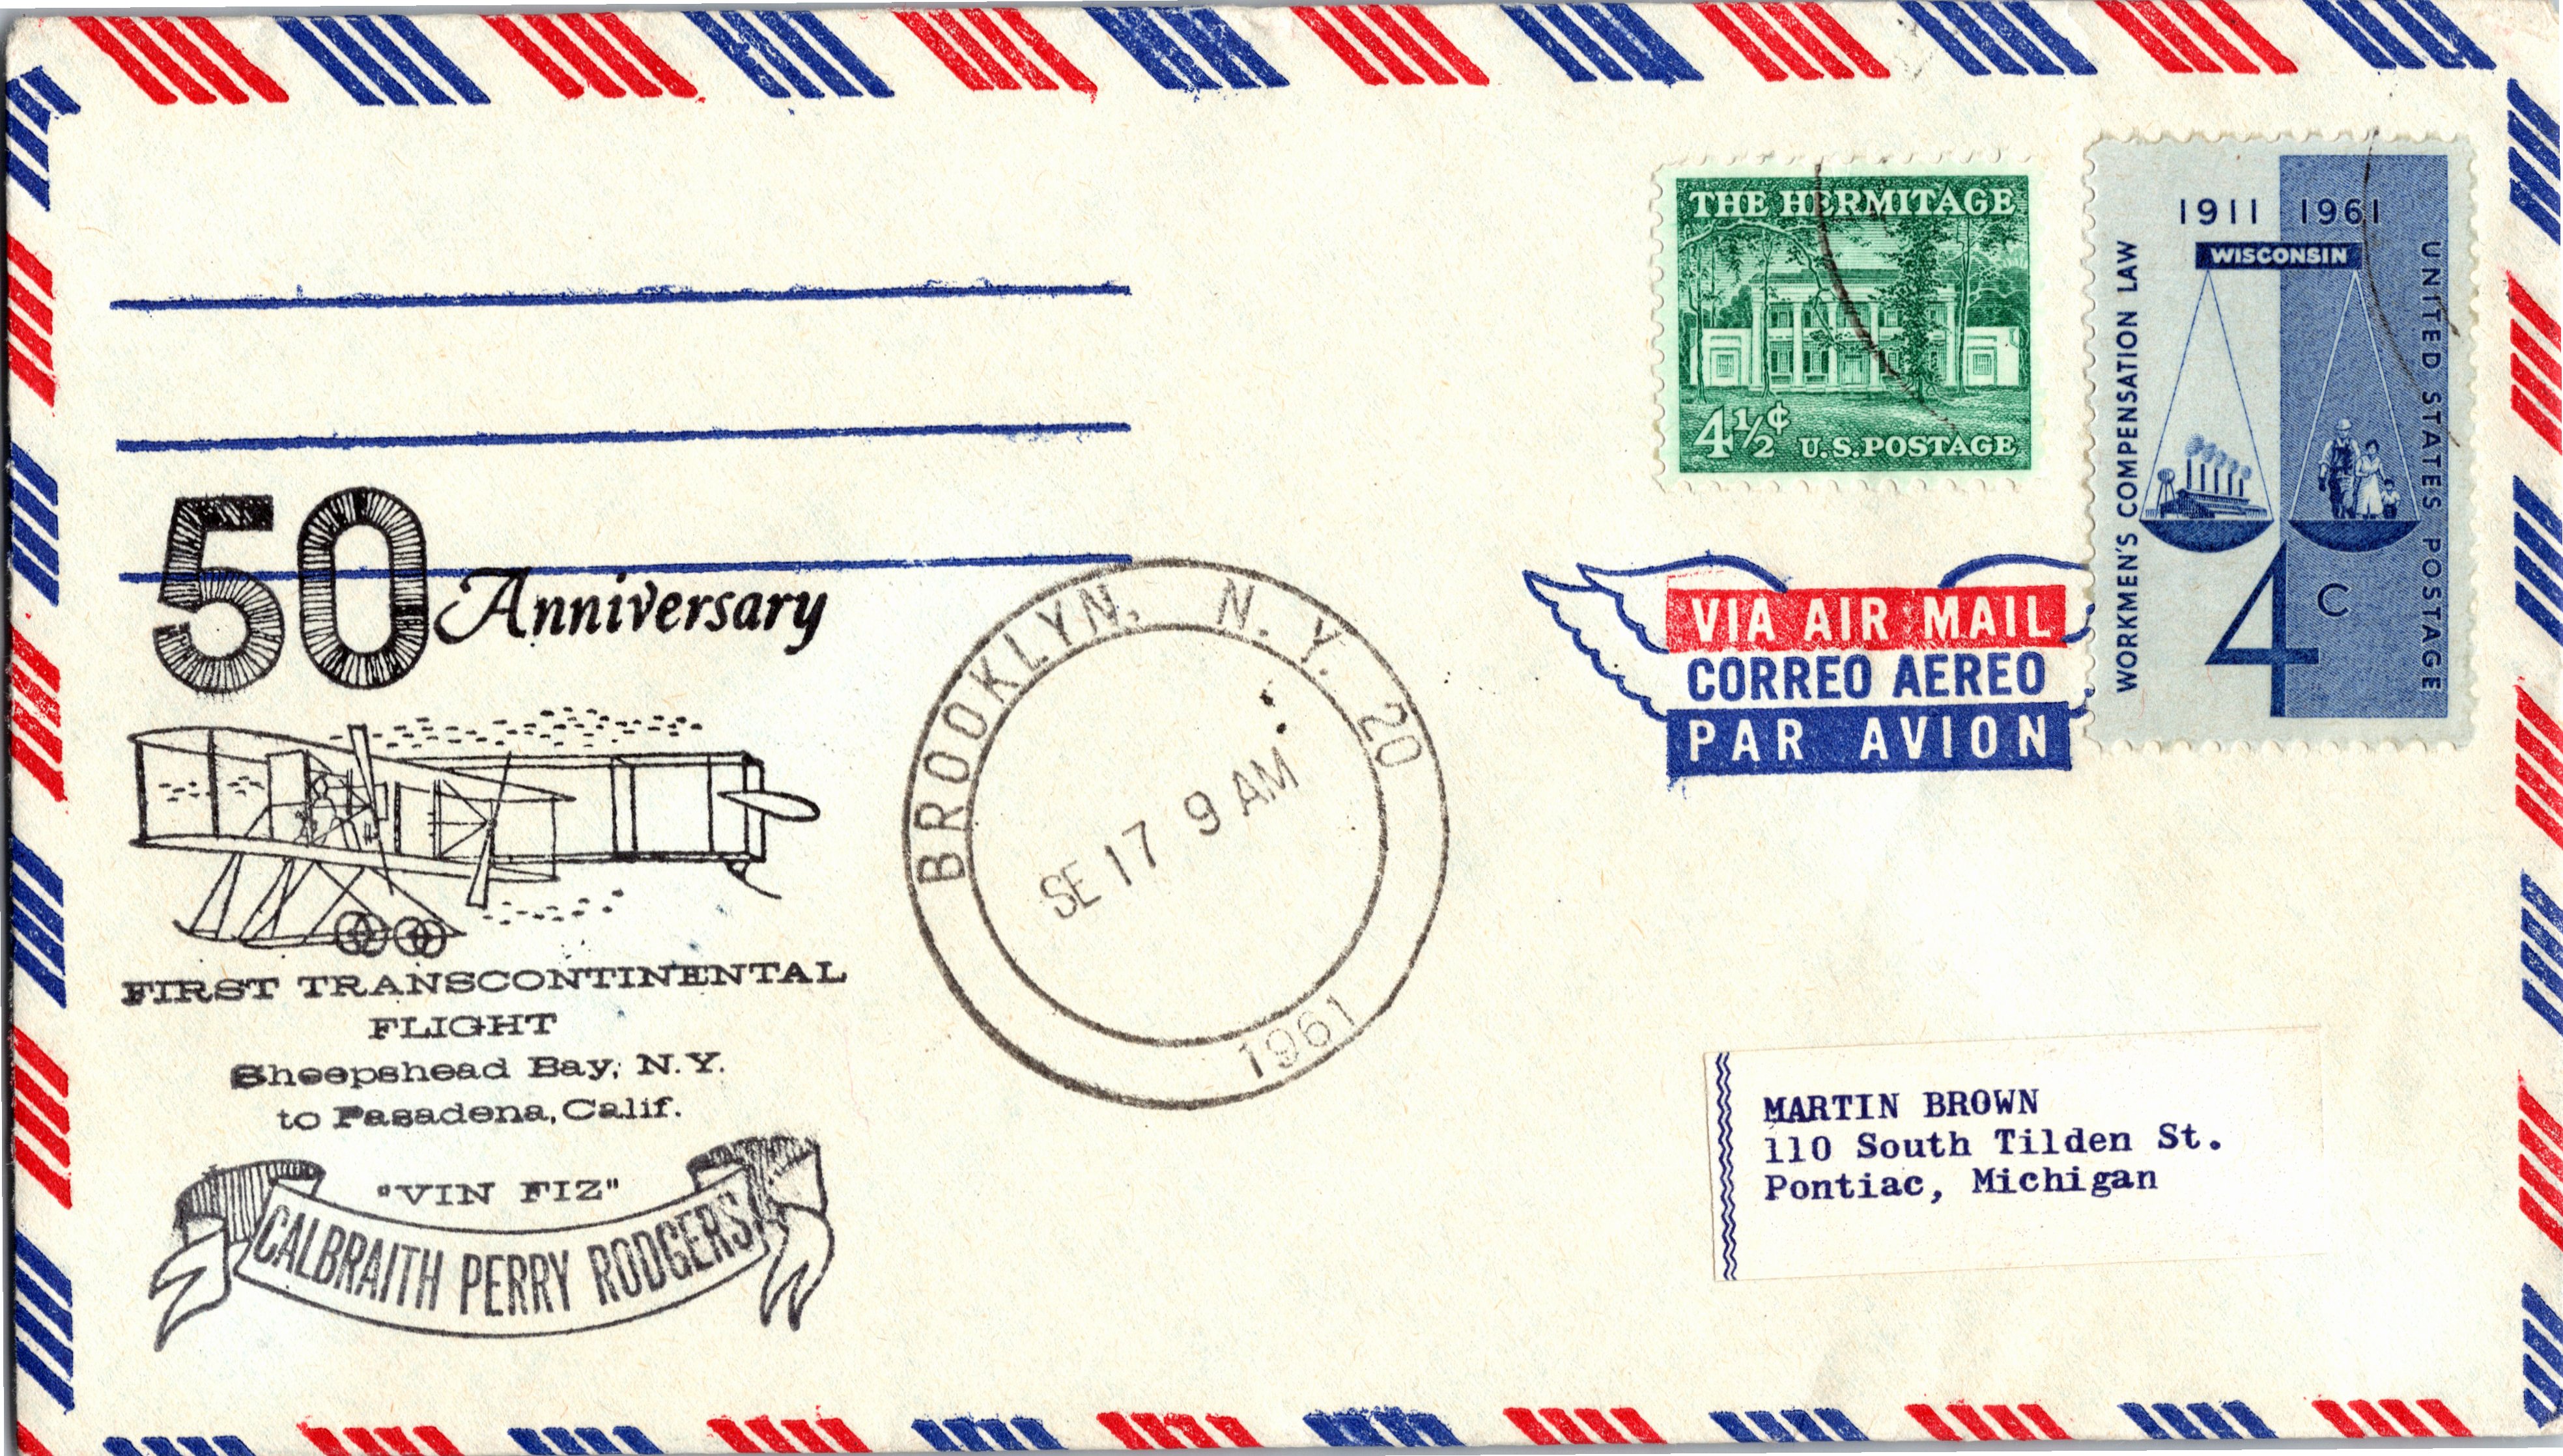 THE HERMITAGE
4½¢ U.S. POSTAGE
1911 1961
WISCONSIN
WORKMEN'S COMPENSATION LAW
UNITED STATES POSTAGE
4 C
VIA AIR MAIL
CORREO AEREO
PAR AVION
50 Anniversary
FIRST TRANSCONTINENTAL
FLIGHT
Sheepshead Bay, N.Y.
to Pasadena, Calif.
"VIN FIZ"
CALBRAITH PERRY RODGERS
BROOKLYN, N.Y. 20
SE 17 9 AM
1961
MARTIN BROWN
110 South Tilden St.
Pontiac, Michigan